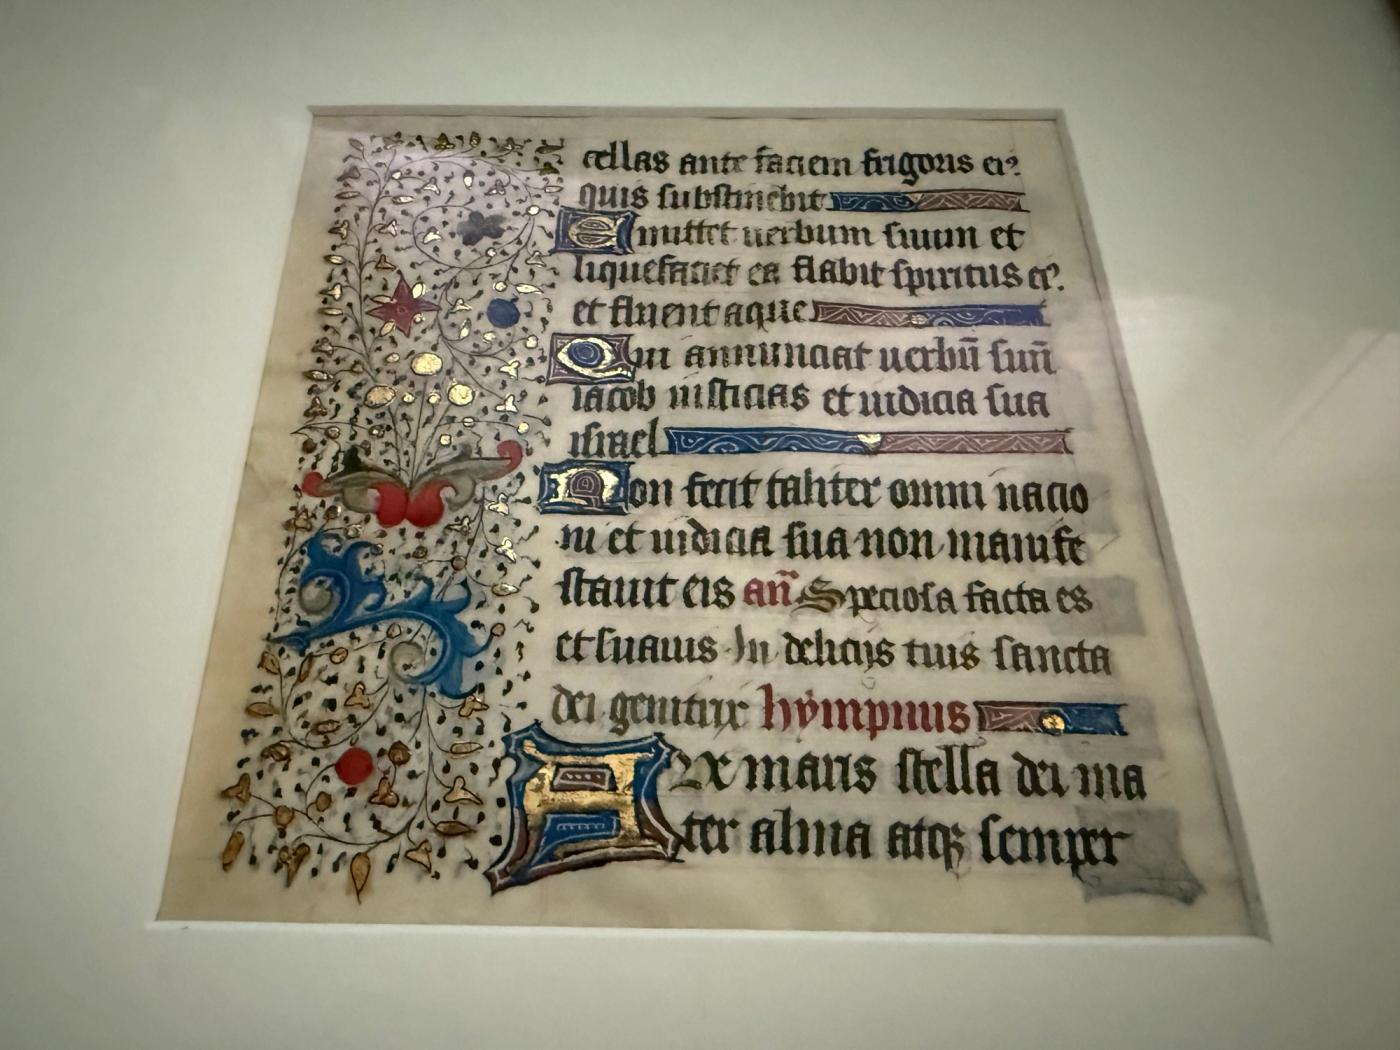 cellas ante faciem frigoris ei⁹
quis substinebit
Emittet uerbum suum et
liquefaciet ea flabit spiritus ei⁹.
et fluent aque
Qui annunciat uerbū suū
iacob iusticias et iudicia sua
israel
Non fecit taliter omni nacio
ni et iudicia sua non manife
stauit eis añ Speciosa facta es
et suauis In delicijs tuis sancta
dei genitrix hympnus
Aue maris stella dei ma
ter alma atqꝫ semper